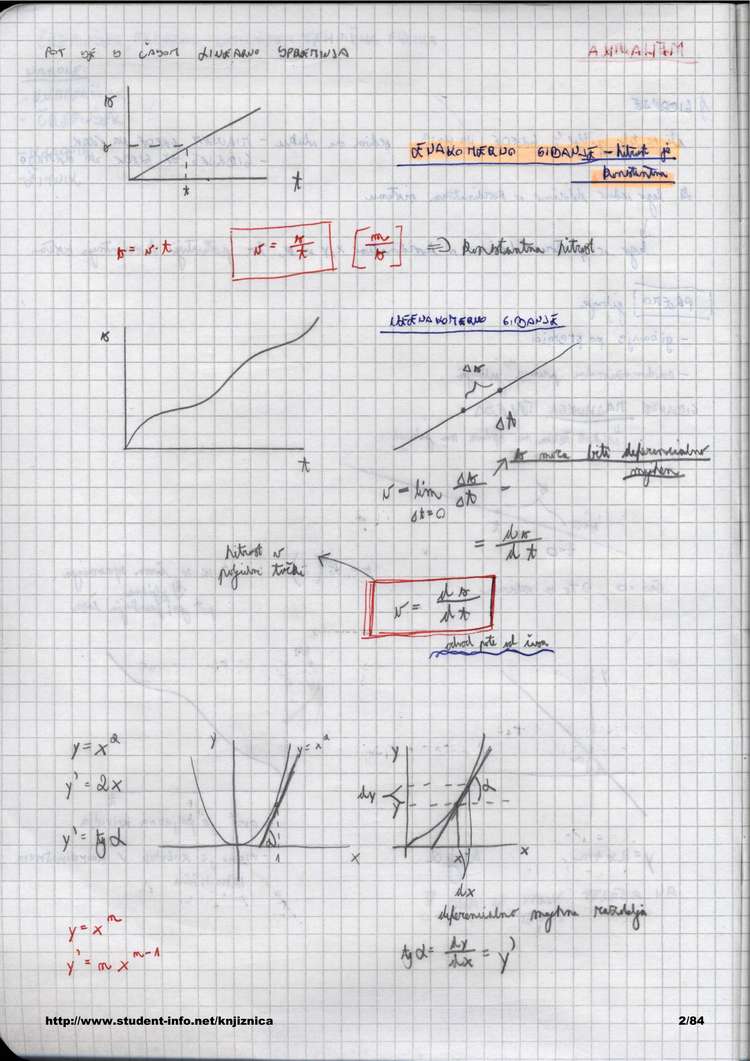 MEHANIKA
POT SE S ČASOM LINEARNO SPREMINJA
s
s
t
t
ENAKOMERNO GIBANJE - hitrost je
konstantna
s = v · t
v = s/t [m/s] => konstantna hitrost
NEENAKOMERNO GIBANJE
s
t
Δs
Δt
s mora biti deferencialno
majhen
v = lim Δs/Δt =
Δt=0
= ds/dt
hitrost v
poljubni točki
v = ds/dt
odvod pote od časa
y = x²
y' = 2x
y' = tg α
y
y = x²
α
1
x
y
dy
y
α
x
x
dx
deferencialno majhna razdalja
tg α = dy/dx = y'
y = xⁿ
y' = n xⁿ⁻¹
http://www.student-info.net/knjiznica
2/84